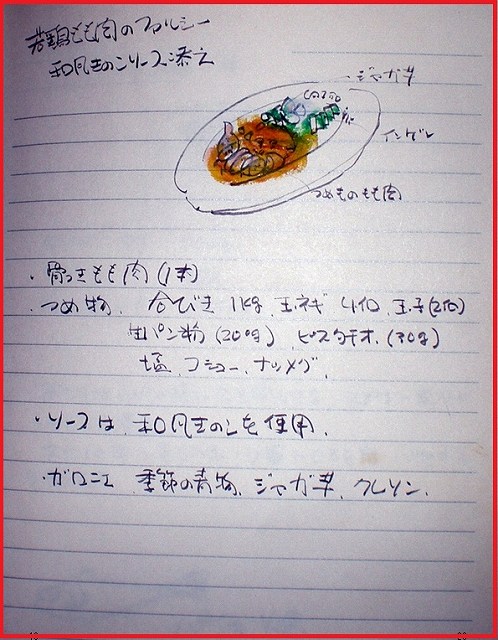 若鶏もも肉のファルシー
和風きのこソース添え
ジャガ芋
クレソン
インゲン
つめものもも肉
・骨つきもも肉(1本)
・つめ物、合びき 1kg 玉ネギ 4個 玉子(2個)
生パン粉(200g) ピスタチオ(30g)
塩、コショー、ナツメグ、
・ソースは、和風きのこを使用、
・ガロニエ 季節の青物、ジャガ芋、クレソン、